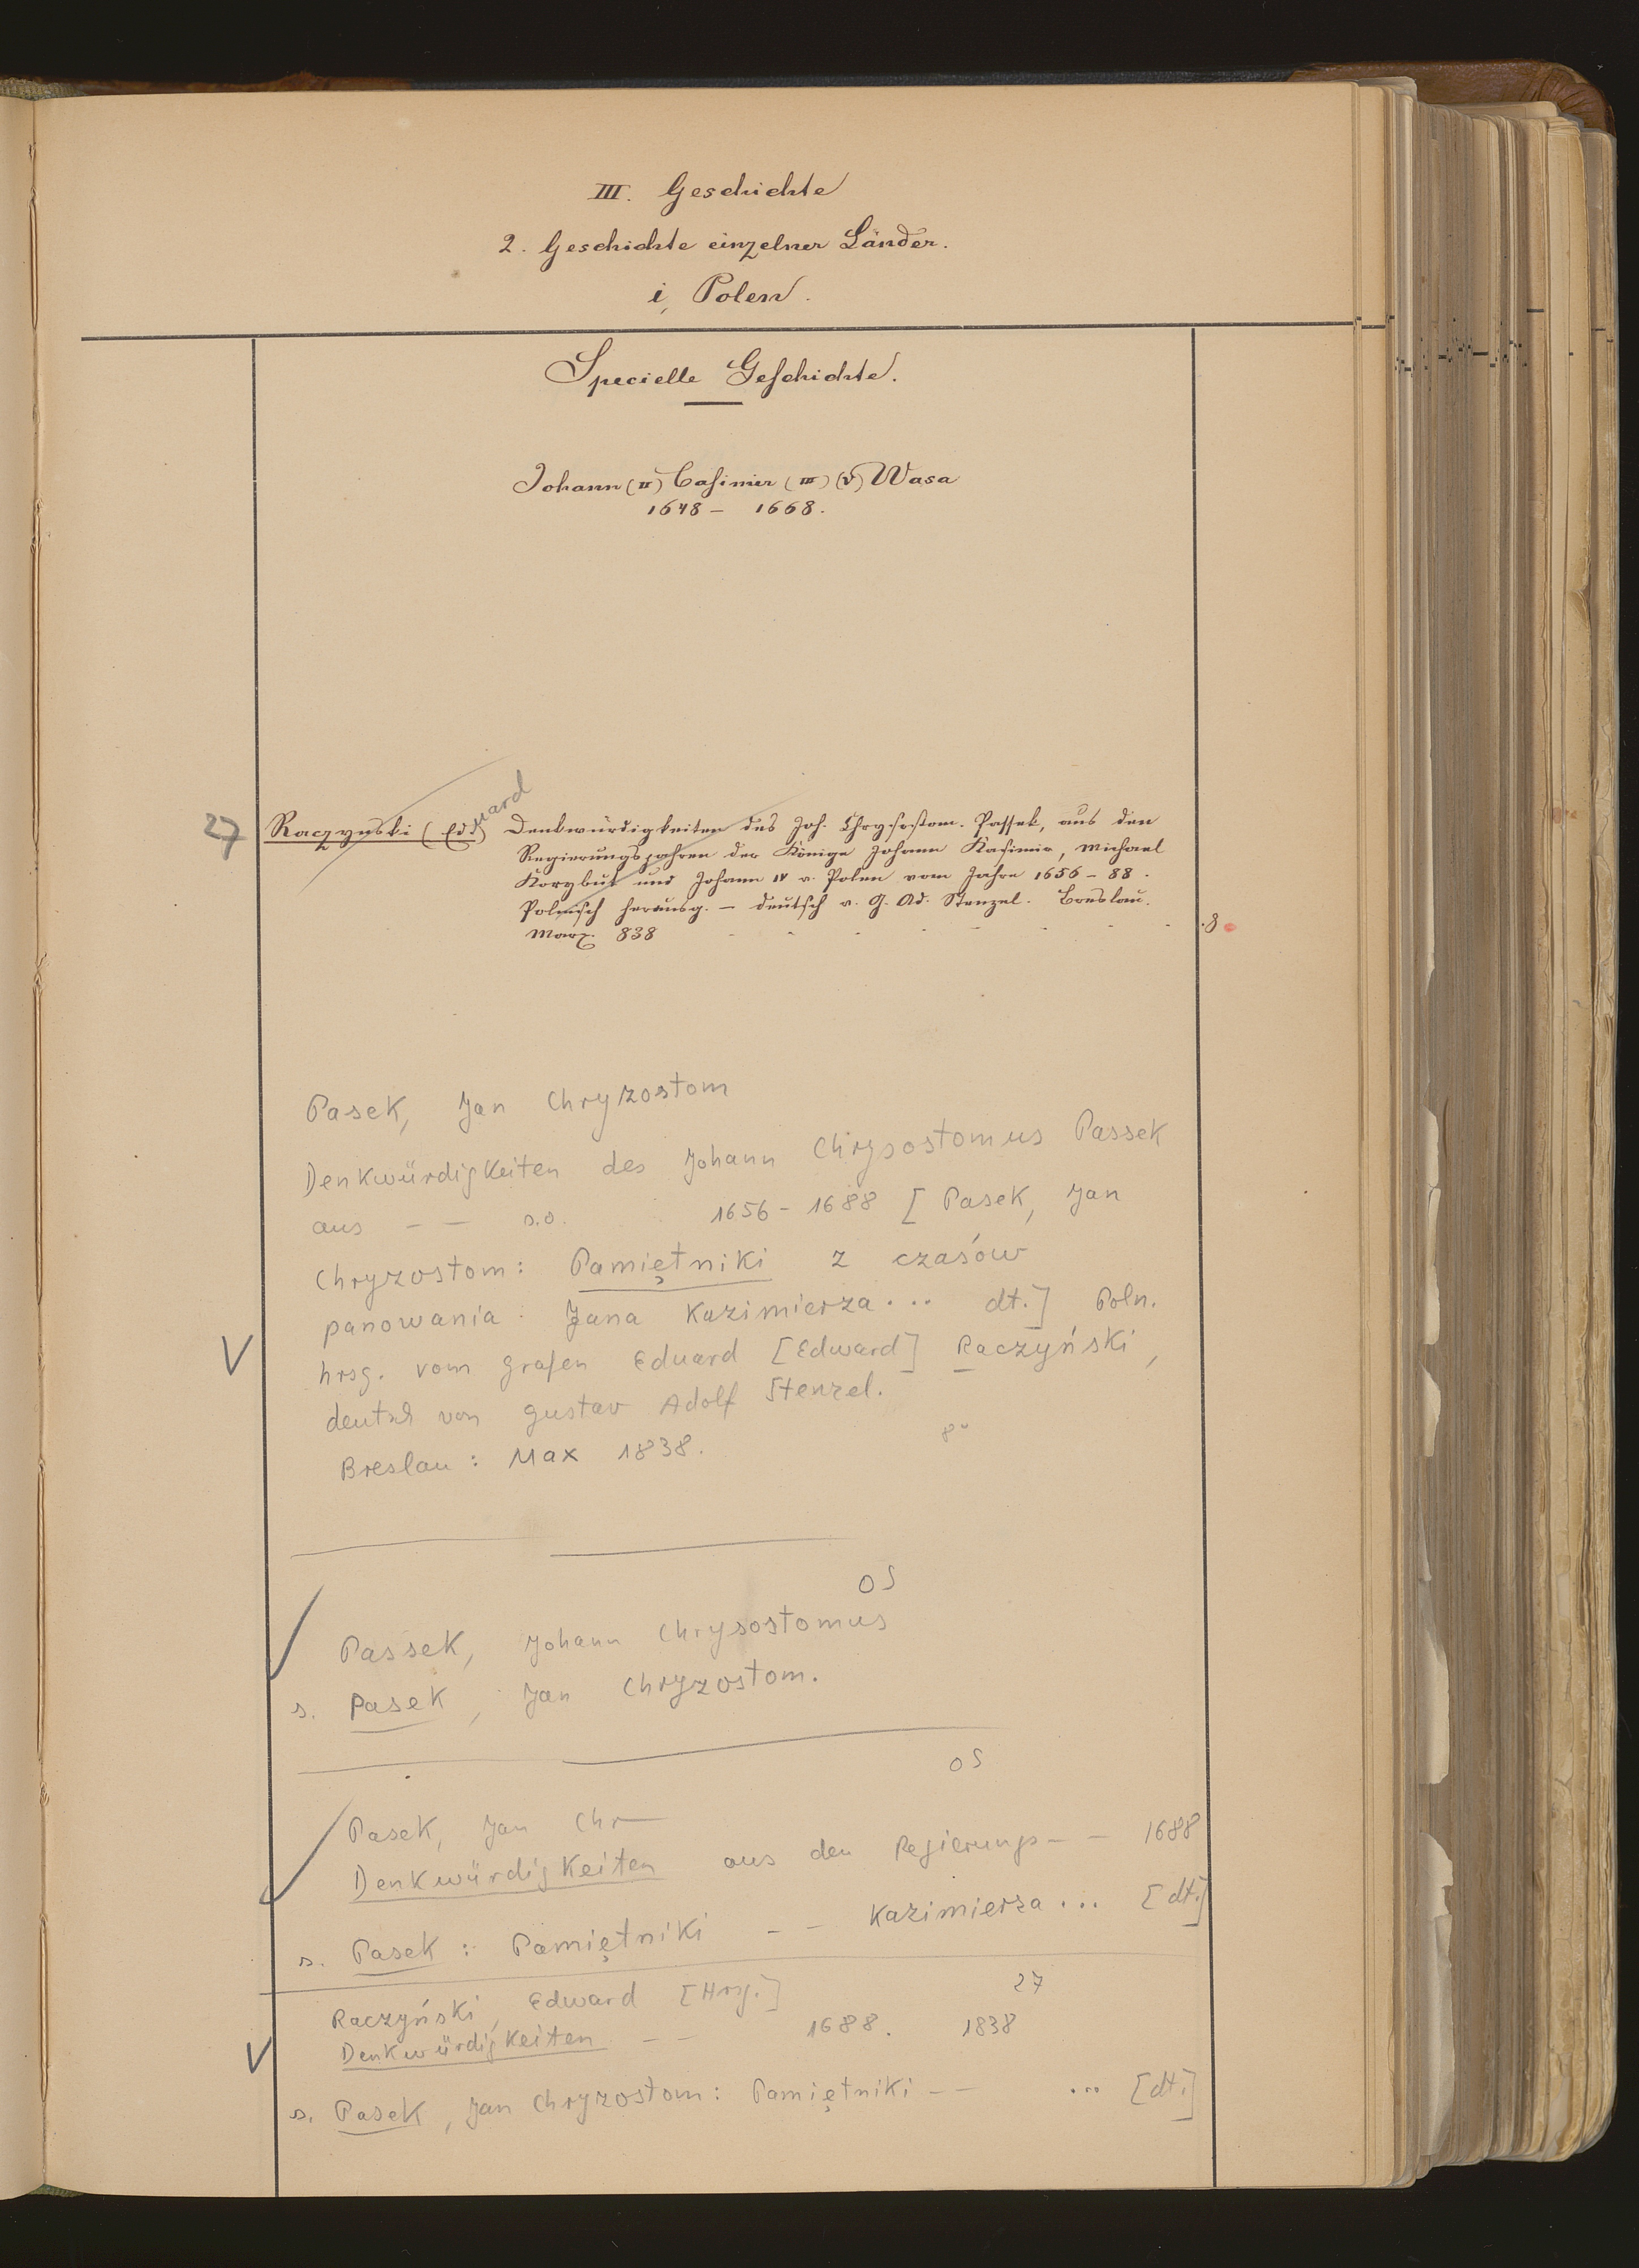 III. Geschichte
2. Geschichte einzelner Länder.
i, Polen.
Specielle Geschichte.
Johann (II) Casimir (III) (V) Wasa
1648 – 1668.
27 Raczynski (Eduard) Denkwürdigkeiten des Joh. Chrysostom. Passek, aus den
Regierungsjahren der Könige Johann Kasimir, Michael
Korybut und Johann IV v. Polen vom Jahre 1656 – 88.
Polnisch herausg. – deutsch v. G. Ad. Stenzel. Breslau.
Max. 838 . 8
Pasek, Jan Chryzostom
Denkwürdigkeiten des Johann Chrysostomus Passek
aus – – s.o. 1656 – 1688 [Pasek, Jan
Chryzostom: Pamiętniki z czasów
panowania Jana Kazimierza... dt.] Poln.
V hrsg. vom Grafen Eduard [Edward] Raczyński,
deutsch von Gustav Adolf Stenzel.
Breslau: Max 1838. 8°
OS
Passek, Johann Chrysostomus
s. Pasek, Jan Chryzostom.
OS
Pasek, Jan Chr—
Denkwürdigkeiten aus den Regierungs – – 1688
s. Pasek: Pamiętniki – – Kazimierza... [dt.]
Raczyński, Edward [Hrsg.] 27
V Denkwürdigkeiten – – 1688. 1838
s. Pasek, Jan Chryzostom: Pamiętniki – – ... [dt.]